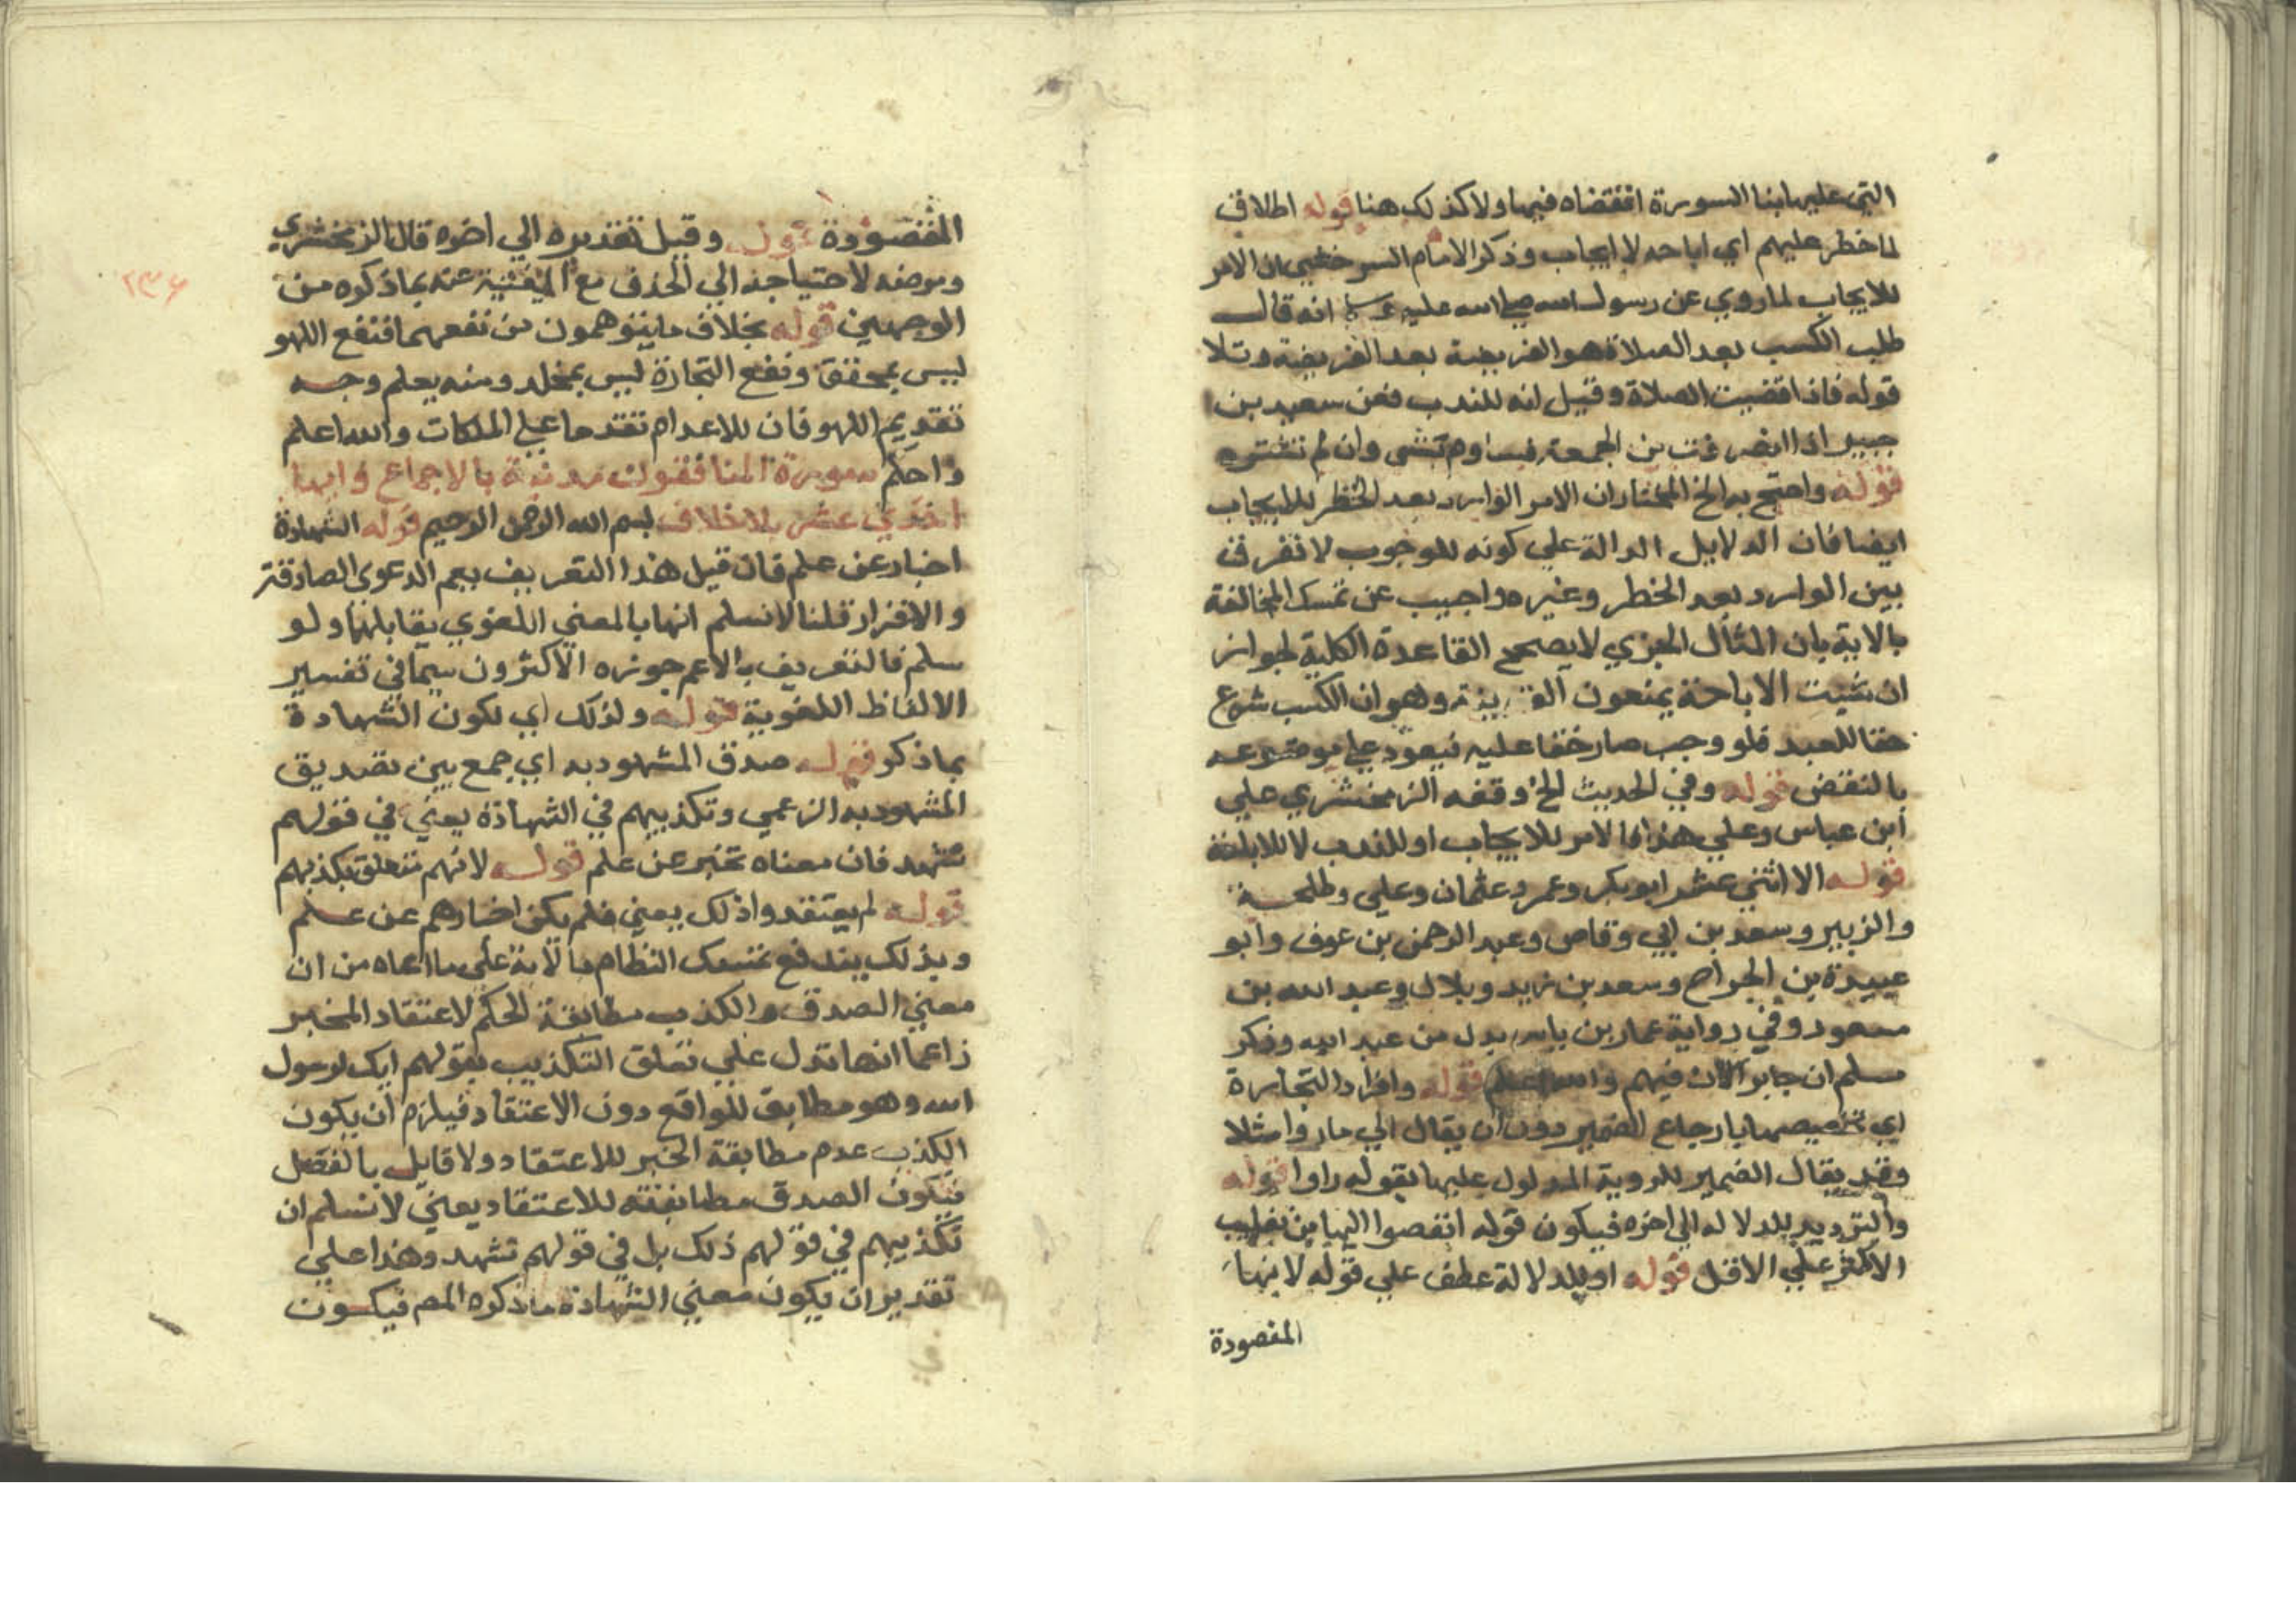 التي عليها بنا السورة اقتضاه فيها ولا كذلك هنا قوله اطلاق
لما حظر عليهم اي اباحه لا ايجاب وذكر الامام السرخسي ان الامر
للايجاب لما روي عن رسول الله صلى الله عليه وسلم انه قال
طلب الكسب بعد الصلاة هو الفريضة بعد الفريضة وتلا
قوله فاذا قضيت الصلاة وقيل انه للندب فعن سعيد بن
جبير اذا انصرفت من الجمعة فساوم بشى وان لم تشتره
قوله واحتج به الخ المختار ان الامر الوارد بعد الحظر للايجاب
ايضا فان الدلايل الدالة علي كونه للوجوب لا تفرق
بين الوارد بعد الحظر وغيره واجيب عن تمسك المخالفة
بالاية بان المثال الجزي لا يصحح القاعدة الكلية لجواز
ان تثبت الاباحة بمعون القرينة وهو ان الكسب شرع
حقا للعبد فلو وجب صار حقا عليه فيعود علي موضوعه
بالنقض قوله وفي الحديث الخ وقفه الزمخشري علي
ابن عباس وعلي هذا فالامر للايجاب او للندب لا للاباحة
قوله الا اثني عشر ابو بكر وعمر وعثمان وعلي وطلحة
والزبير وسعد بن ابي وقاص وعبد الرحمن بن عوف وابو
عبيدة بن الجراح وسعد بن زيد وبلال وعبد الله بن
مسعود وفي رواية عمار بن ياسر بدل من عبد الله وذكر
مسلم ان جابرا كان فيهم والله اعلم قوله وافراد التجارة
اي تخصيصها بارجاع الضمير دون ان يقال الي ما راوا مثلا
وقد يقال الضمير للروية المدلول عليها بقوله راوا قوله
والترديد للدلالة الي اخره فيكون قوله انفضوا اليها من تغليب
الاكثر علي الاقل قوله او للدلالة عطف علي قوله لانها
المقصودة
المقصودة قوله وقيل تقديره الي اخره قال الزمخشري
ومرضه لاحتياجه الي الحذف مع الغنية عنه بما ذكره من
الوجهين قوله بخلاف ما يتوهمون من نفعهما فنفع اللهو
ليس بمحقق ونفع التجارة ليس بمخلد ومنه يعلم وجه
تقديم اللهو فان للاعدام تقدما علي الملكات والله اعلم
واحكم سورة المنافقون مدنية بالاجماع وايها
احدي عشر بلا خلاف بسم الله الرحمن الرحيم قوله الشهادة
اخبار عن علم فان قيل هذا التعريف يعم الدعوى الصادقة
والاقرار قلنا لا نسلم انها بالمعني اللغوي يقابلها ولو
سلم فالتعريف بالاعم جوزه الاكثرون سيما في تفسير
الالفاظ اللغوية قوله ولذلك اي لكون الشهادة
بما ذكر قوله صدق المشهود به اي جمع بين تصديق
المشهود به الزعمي وتكذيبهم في الشهادة يعني في قولهم
نشهد فان معناه نخبر عن علم قوله لانهم تتعلق بكذبهم
قوله لم يعتقدوا ذلك يعني فلم يكن اخبارهم عن علم
وبذلك يندفع تمسك النظام بالاية علي ما ادعاه من ان
معني الصدق والكذب مطابقة الحكم لاعتقاد المخبر
زاعما انها تدل علي تعلق التكذيب بقولهم انك لرسول
الله وهو مطابق للواقع دون الاعتقاد فيلزم ان يكون
الكذب عدم مطابقة الخبر للاعتقاد ولا قايل بالفصل
فيكون الصدق مطابقته للاعتقاد يعني لا نسلم ان
تكذيبهم في قولهم ذلك بل في قولهم نشهد وهذا علي
تقدير ان يكون معني الشهادة ما ذكره المص فيكون
٢٣٦